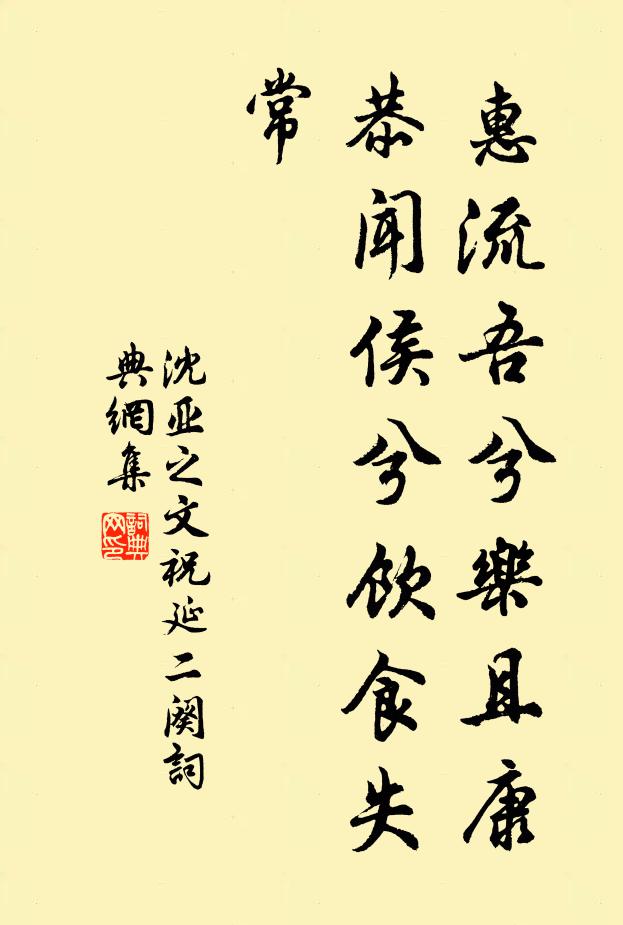 惠流吾兮樂且康
恭聞侯兮飲食失
常
沈亚之文祝延二闋詞
典網集
詞典
网印